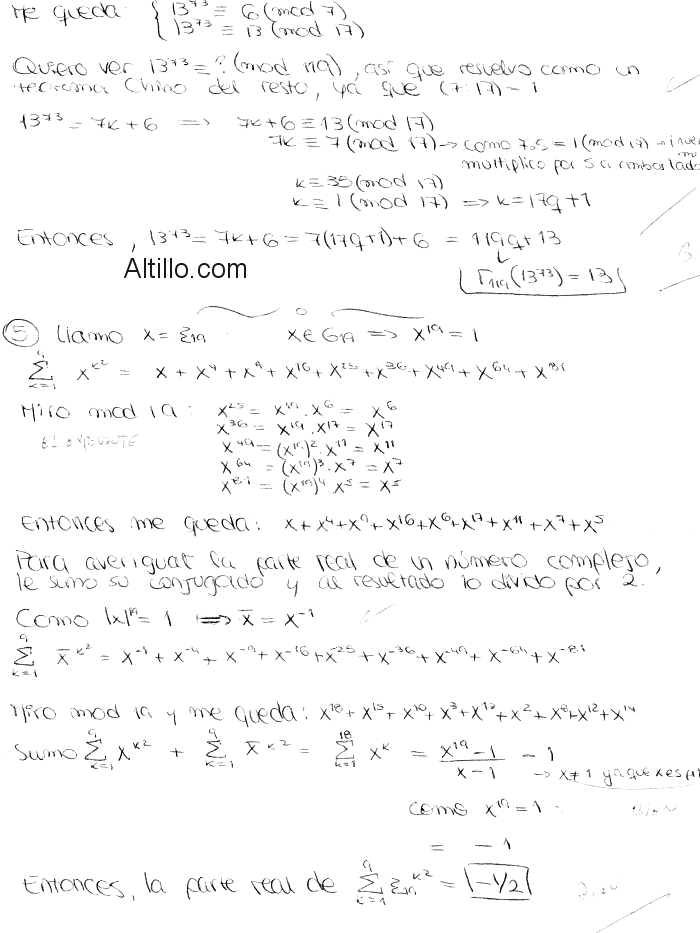 Me queda: { 13^73 ≡ 6 (mod 7)
13^73 ≡ 13 (mod 17)
Quiero ver 13^73 ≡ ? (mod 119), así que resuelvo como un
teorema Chino del resto, ya que (7:17) = 1
13^73 = 7k+6 ⟹ 7k+6 ≡ 13 (mod 17)
7k ≡ 7 (mod 17) → como 7.5 = 1 (mod 17)
multiplico por 5 a ambos lado
k ≡ 35 (mod 17)
k ≡ 1 (mod 17) ⟹ k = 17q+1
Entonces, 13^73 = 7k+6 = 7(17q+1)+6 = 119q+13
Altillo.com
r_119(13^73) = 13
⑤ Llamo x = ξ_19 x ∈ G_19 ⟹ x^19 = 1
∑_{k=1}^{9} x^{k^2} = x + x^4 + x^9 + x^16 + x^25 + x^36 + x^49 + x^64 + x^81
Miro mod 19: x^25 = x^19 . x^6 = x^6
EL EXPONENTE x^36 = x^19 . x^17 = x^17
x^49 = (x^19)^2 . x^11 = x^11
x^64 = (x^19)^3 . x^7 = x^7
x^81 = (x^19)^4 x^5 = x^5
Entonces me queda: x + x^4 + x^9 + x^16 + x^6 + x^17 + x^11 + x^7 + x^5
Para averiguar la parte real de un número complejo,
le sumo su conjugado y al resultado lo divido por 2.
Como |x|^19 = 1 ⟹ x̄ = x^-1
∑_{k=1}^{9} x̄^{k^2} = x^-1 + x^-4 + x^-9 + x^-16 + x^-25 + x^-36 + x^-49 + x^-64 + x^-81
Miro mod 19 y me queda: x^18 + x^15 + x^10 + x^3 + x^13 + x^2 + x^8 + x^12 + x^14
Sumo ∑_{k=1}^{9} x^{k^2} + ∑_{k=1}^{9} x̄^{k^2} = ∑_{k=1}^{18} x^k = (x^19 - 1)/(x - 1) - 1
→ x ≠ 1 ya que x es pri
como x^19 = 1: BIEN
= -1
Entonces, la parte real de ∑_{k=1}^{9} ξ_19^{k^2} = -1/2